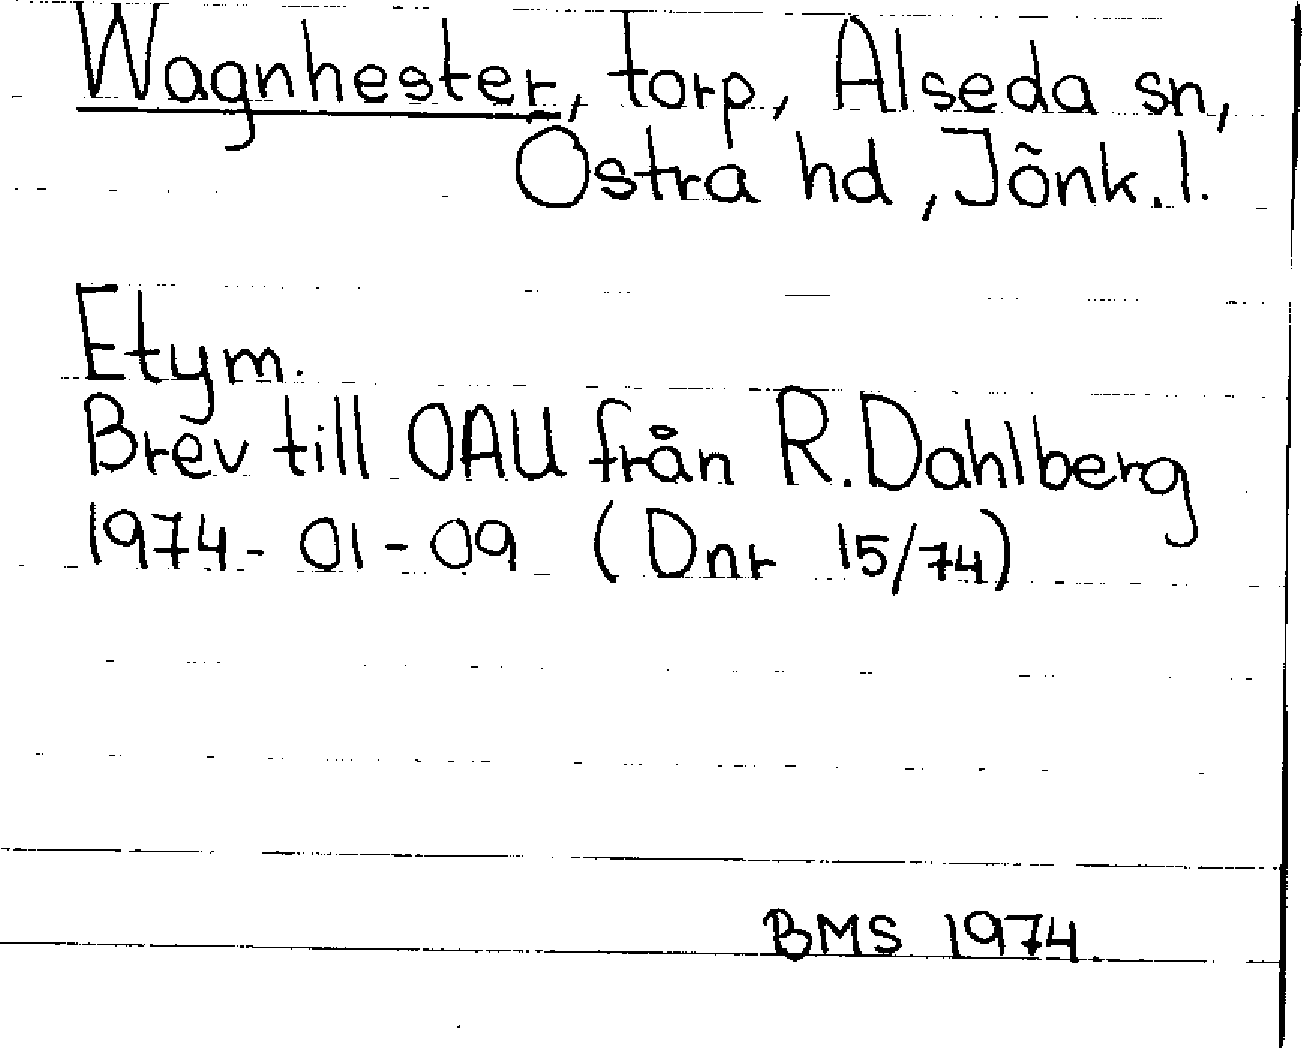 Wagnhester, torp, Alseda sn,
Östra hd, Jönk. l.
Etym.
Brev till OAU från R. Dahlberg
1974-01-09 (Dnr 15/74)
BMS 1974.